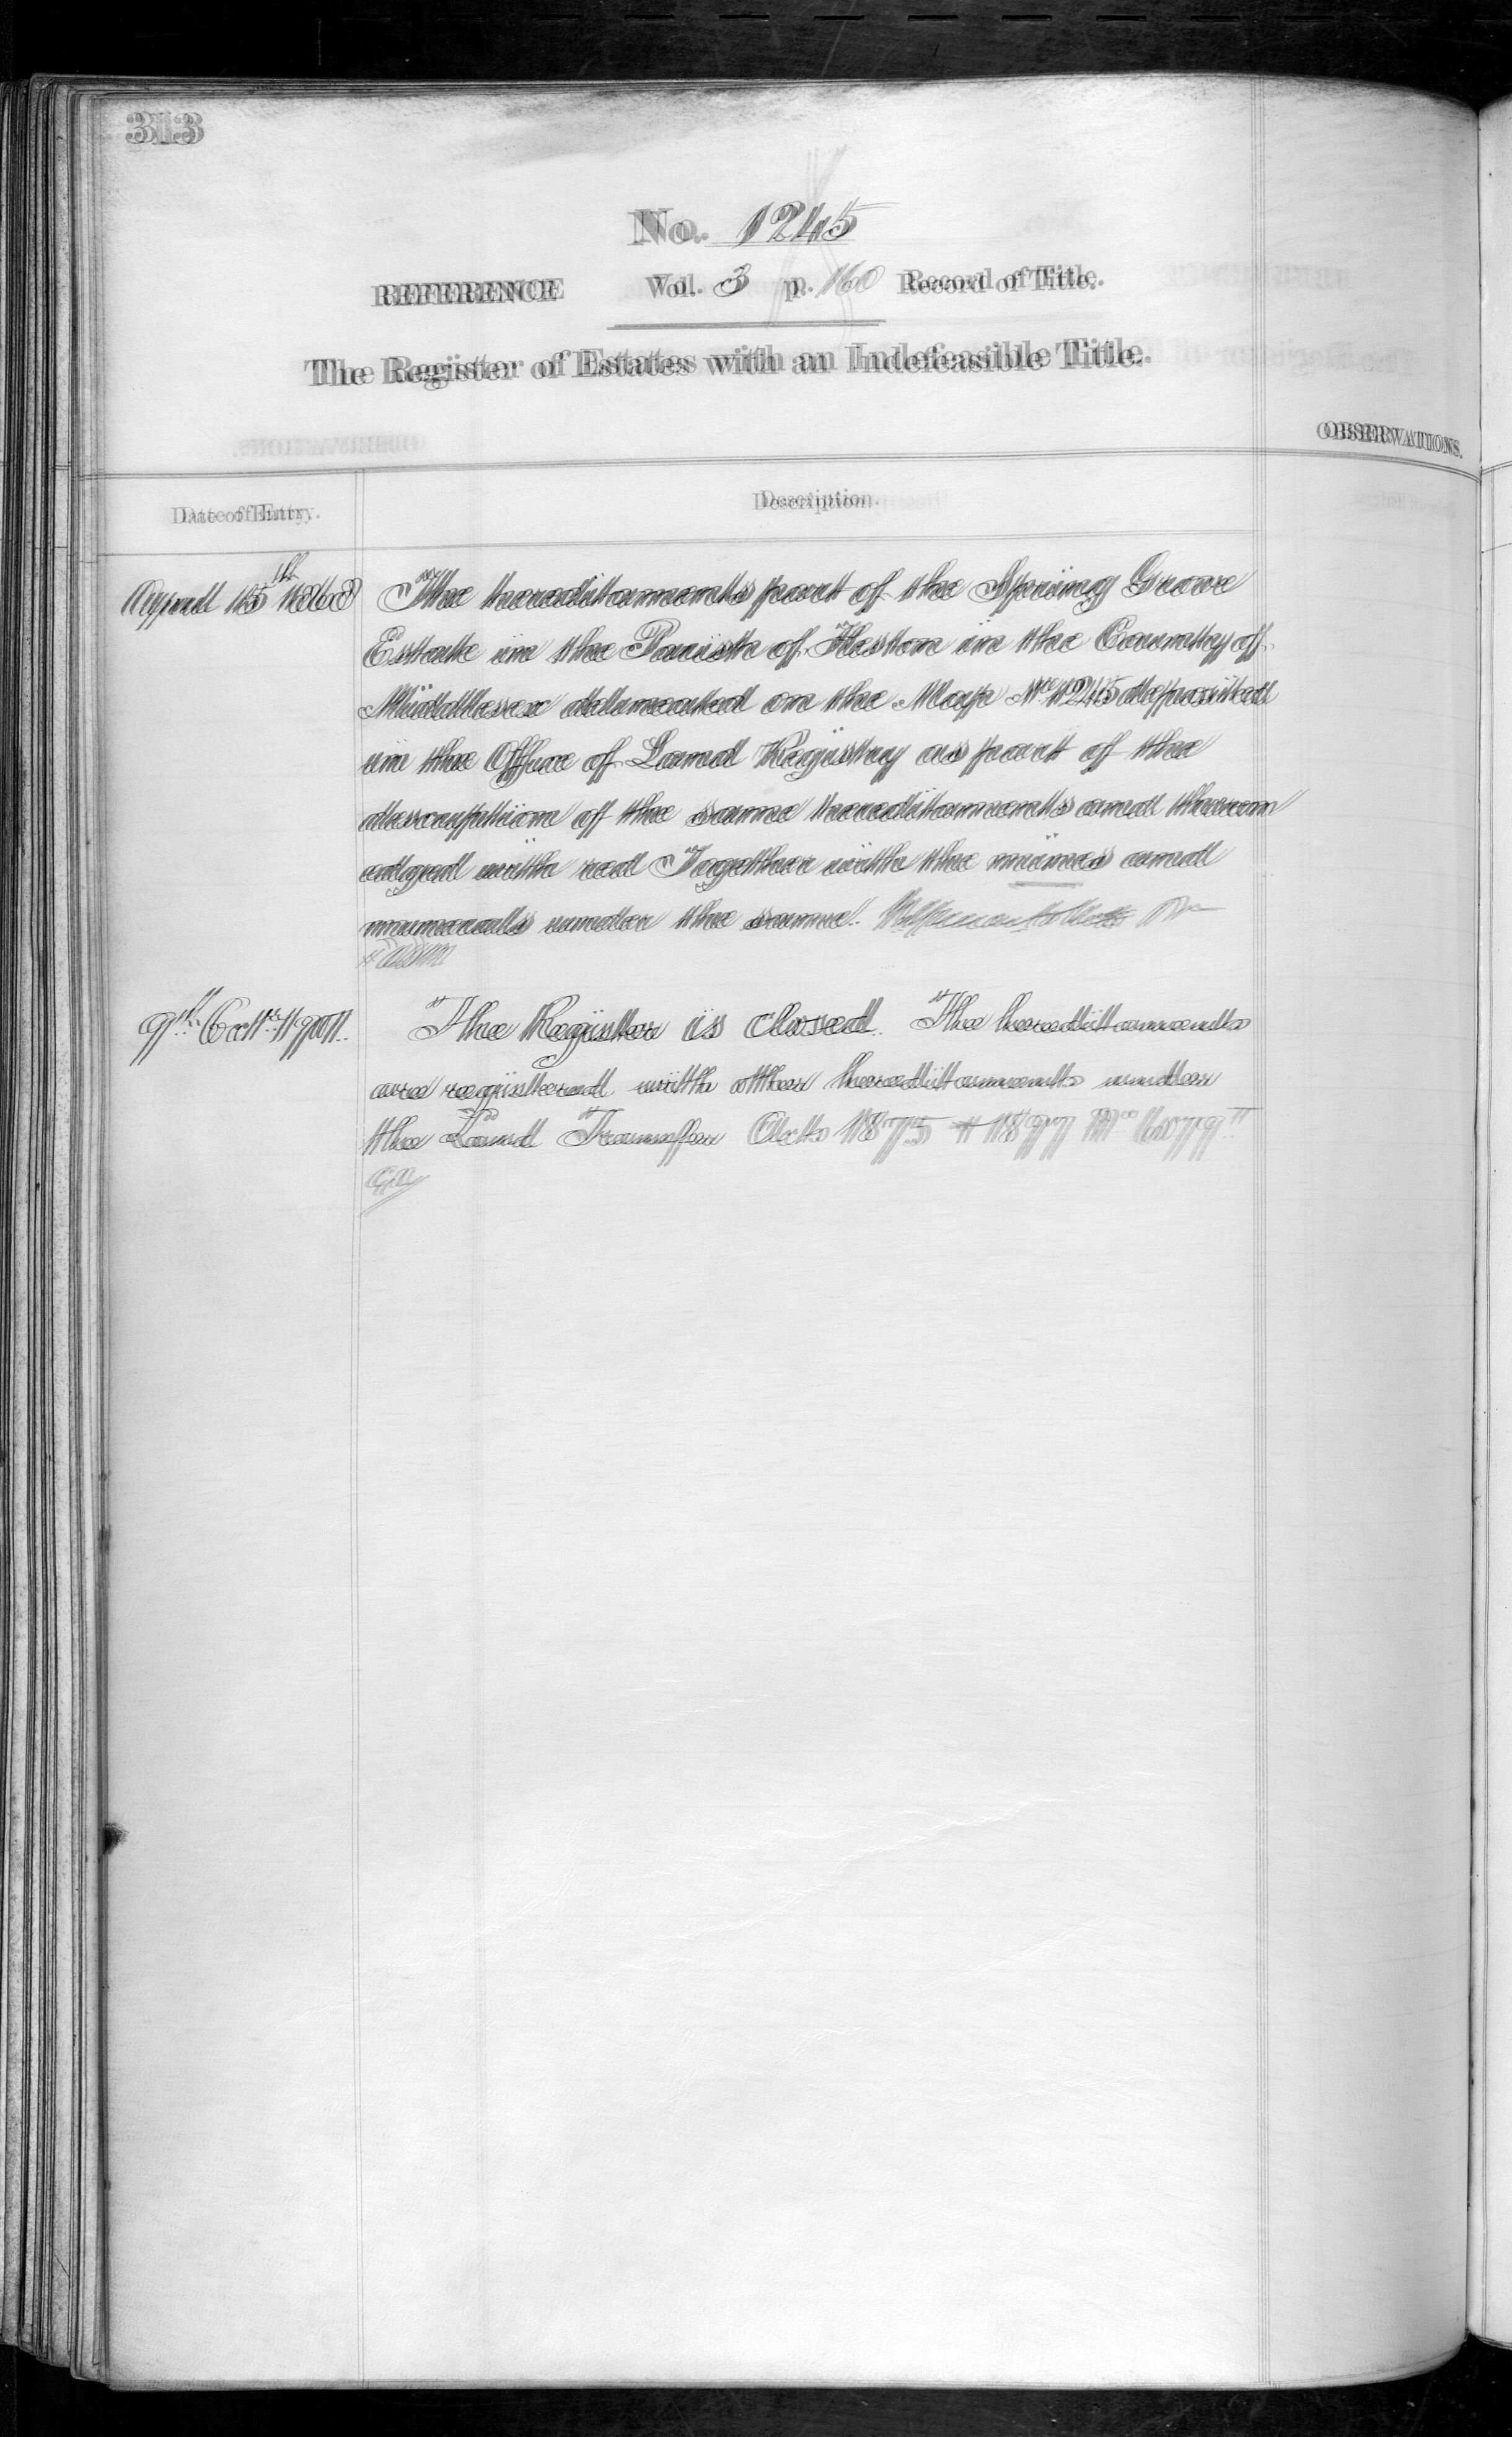 313
No. 1245
REFERENCE Vol. 3 p. 160 Record of Title.
The Register of Estates with an Indefeasible Title.
OBSERVATIONS.
Date of Entry.
Description.
April 15th 1868
The hereditaments part of the Spring Grove
Estate in the Parish of Heston in the County of
Middlesex delineated on the Map No 1245 deposited
in the Office of Land Registry as part of the
description of the same hereditaments and thereon
edged with red Together with the mines and
minerals under the same.
9th Oct. 1901.
The Register is closed. The hereditaments
are registered with other hereditaments under
the Land Transfer Acts 1875 & 1897